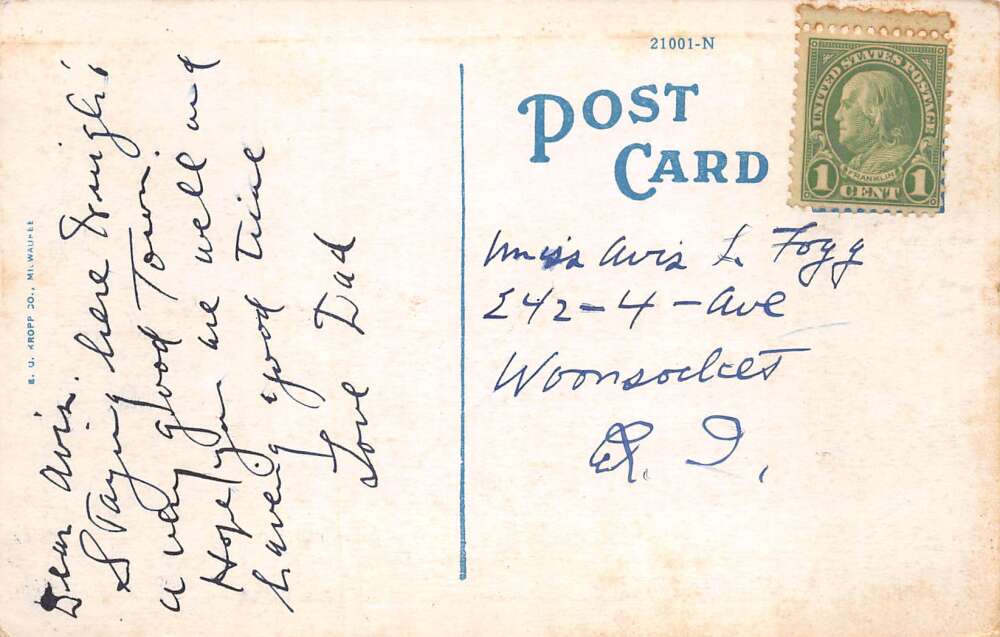 Dear Avis.
Staying here Tonight
a very good Town.
Hope you are well and
having good time
Love Dad
E. C. KROPP CO., MILWAUKEE
21001-N
POST
CARD
UNITED STATES POSTAGE
FRANKLIN
1 CENT 1
Miss Avis L. Fogg
242-4-Ave
Woonsocket
R. I.